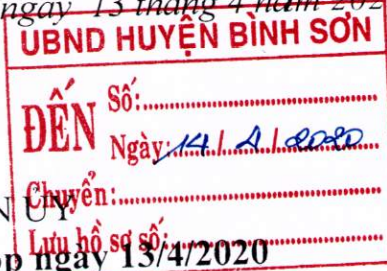 ngày 13 tháng 4 năm 202
UBND HUYỆN BÌNH SƠN
ĐẾN
Số:
Ngày: 14 / 4 / 2020
Chuyển:
N ỦY
Lưu hồ sơ số:
ọp ngày 13/4/2020